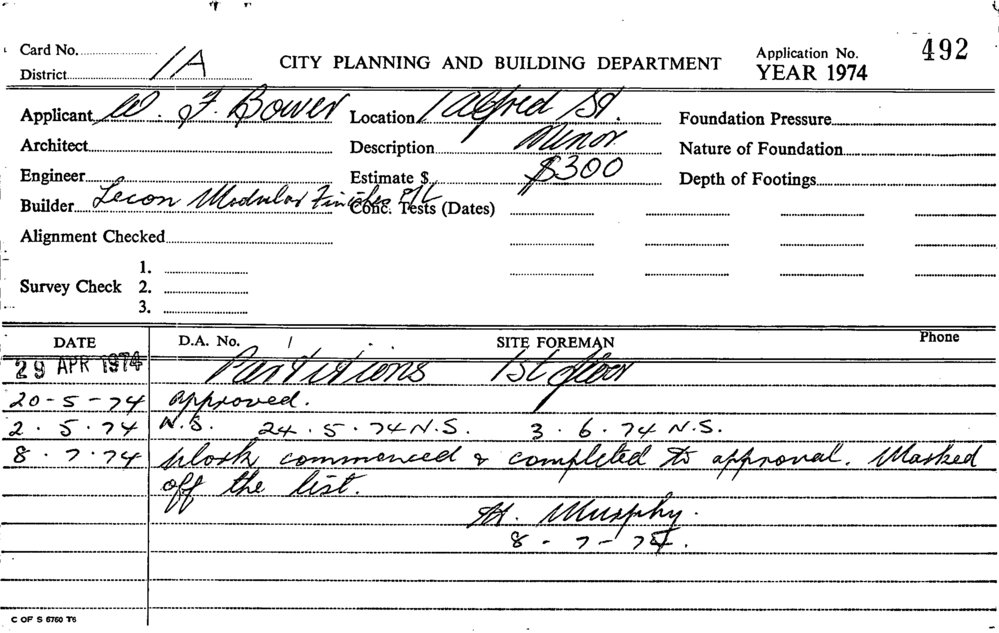 Card No. Application No. 492
District 1A CITY PLANNING AND BUILDING DEPARTMENT YEAR 1974
Applicant W. F. Bower Location 1 Alfred St. Foundation Pressure
Architect Description Minor Nature of Foundation
Engineer Estimate $ $300 Depth of Footings
Builder Lecon Modular Finishes P/L Conc. Tests (Dates)
Alignment Checked
1.
Survey Check 2.
3.
DATE D.A. No. SITE FOREMAN Phone
29 APR 1974 Partitions 1st floor
20-5-74 Approved.
2.5.74 N.S. 24.5.74 N.S. 3.6.74 N.S.
8.7.74 Work commenced & completed to approval. Marked
off the list.
Murphy.
8-7-74.
C OF S 6760 T6